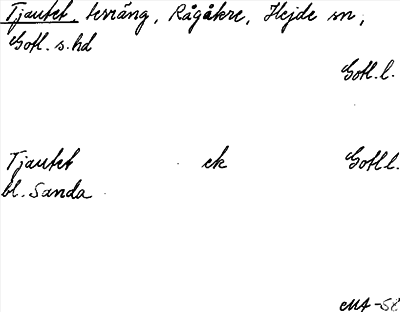 Tjautet, terräng, Rågåkre, Hejde sn,
Gotl. s. hd
Gotl. l.
Tjautet ek Gotl l.
bl. Sanda